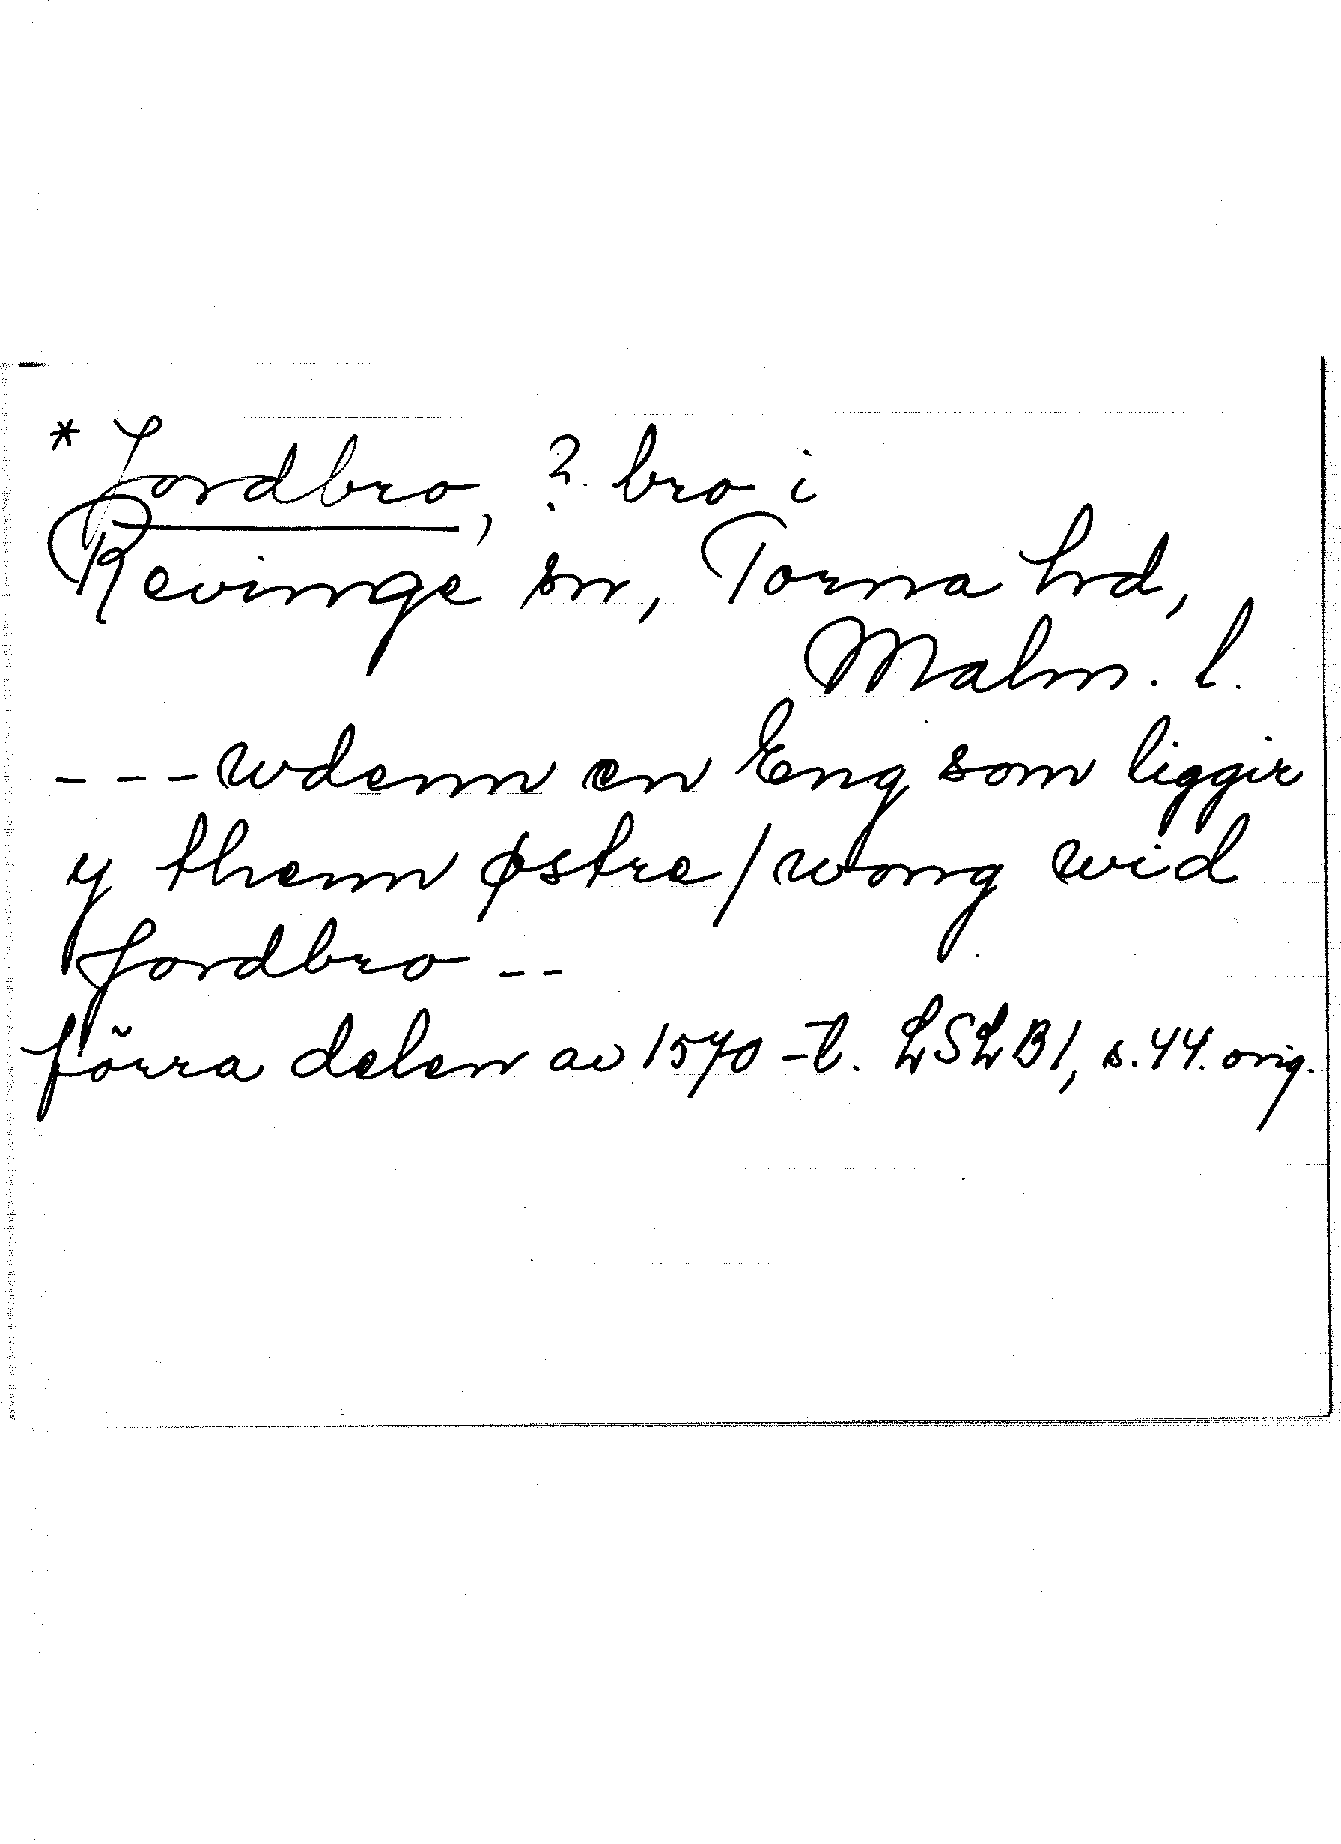 * Jordbro, ? bro i
Revinge sn, Torna hd,
Malm. l.
--- wdenn en Eng som liggir
y thenn østre/wong wid
Jordbro --
förra delen av 1570-t. LSLB1, s. 44. orig.